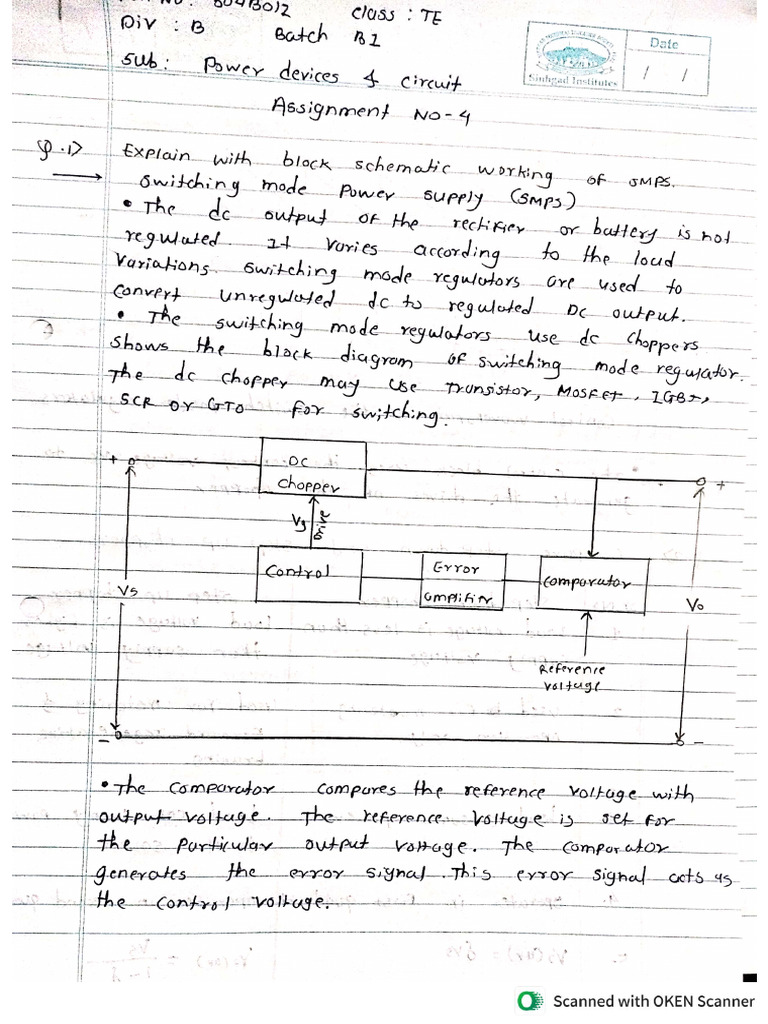 : B04B012 class : TE
Div : B Batch B1
Sinhgad Institutes
Date
/ /
Sub: Power devices & circuit
Assignment No-4
Q.1) Explain with block schematic working of SMPS.
Switching mode power supply (SMPS)
• The dc output of the rectifier or battery is not
regulated. It varies according to the load
variations. Switching mode regulators are used to
convert unregulated dc to regulated DC output.
• The switching mode regulators use dc choppers
shows the block diagram of switching mode regulator.
The dc chopper may use transistor, MOSFET, IGBT,
SCR or GTO for switching.
+ DC +
chopper
Vg Drive
Control Error
amplifier comparator
Vs Vo
Reference
voltage
- -
• The comparator compares the reference voltage with
output voltage. The reference voltage is set for
the particular output voltage. The comparator
generates the error signal. This error signal acts as
the control voltage.
Scanned with OKEN Scanner